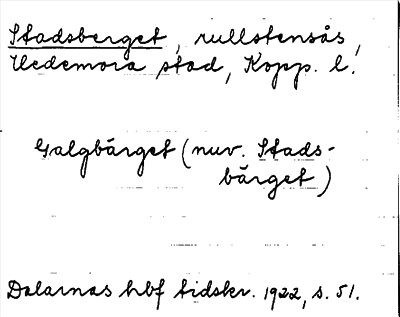 Stadsberget, rullstensås,
Hedemora stad, Kopp. l.
Galgbärget (nuv. Stads-
bärget)
Dalarnas hbf tidskr. 1922, s. 51.